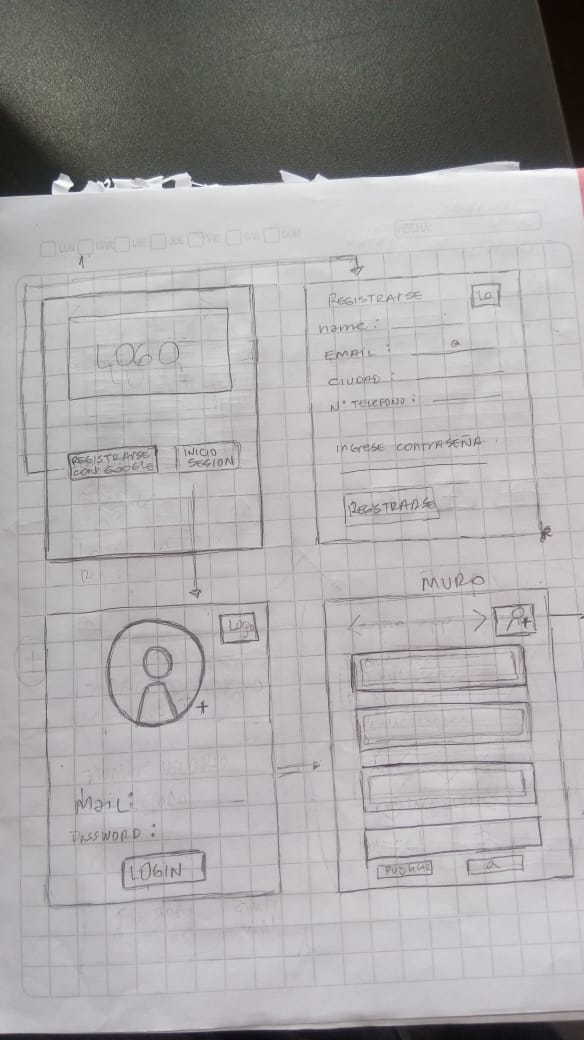 LUN MAR MIE JUE VIE SAB DOM
FECHA:
1
LOGO
REGISTRARSE
CON GOOGLE
INICIO
SESION
REGISTRARSE
Lo
name:
EMAIL: @
CIUDAD:
N° TELEFONO:
INGRESE CONTRASEÑA
REGISTRARSE
Logo
Mail:
PASSWORD:
LOGIN
MURO